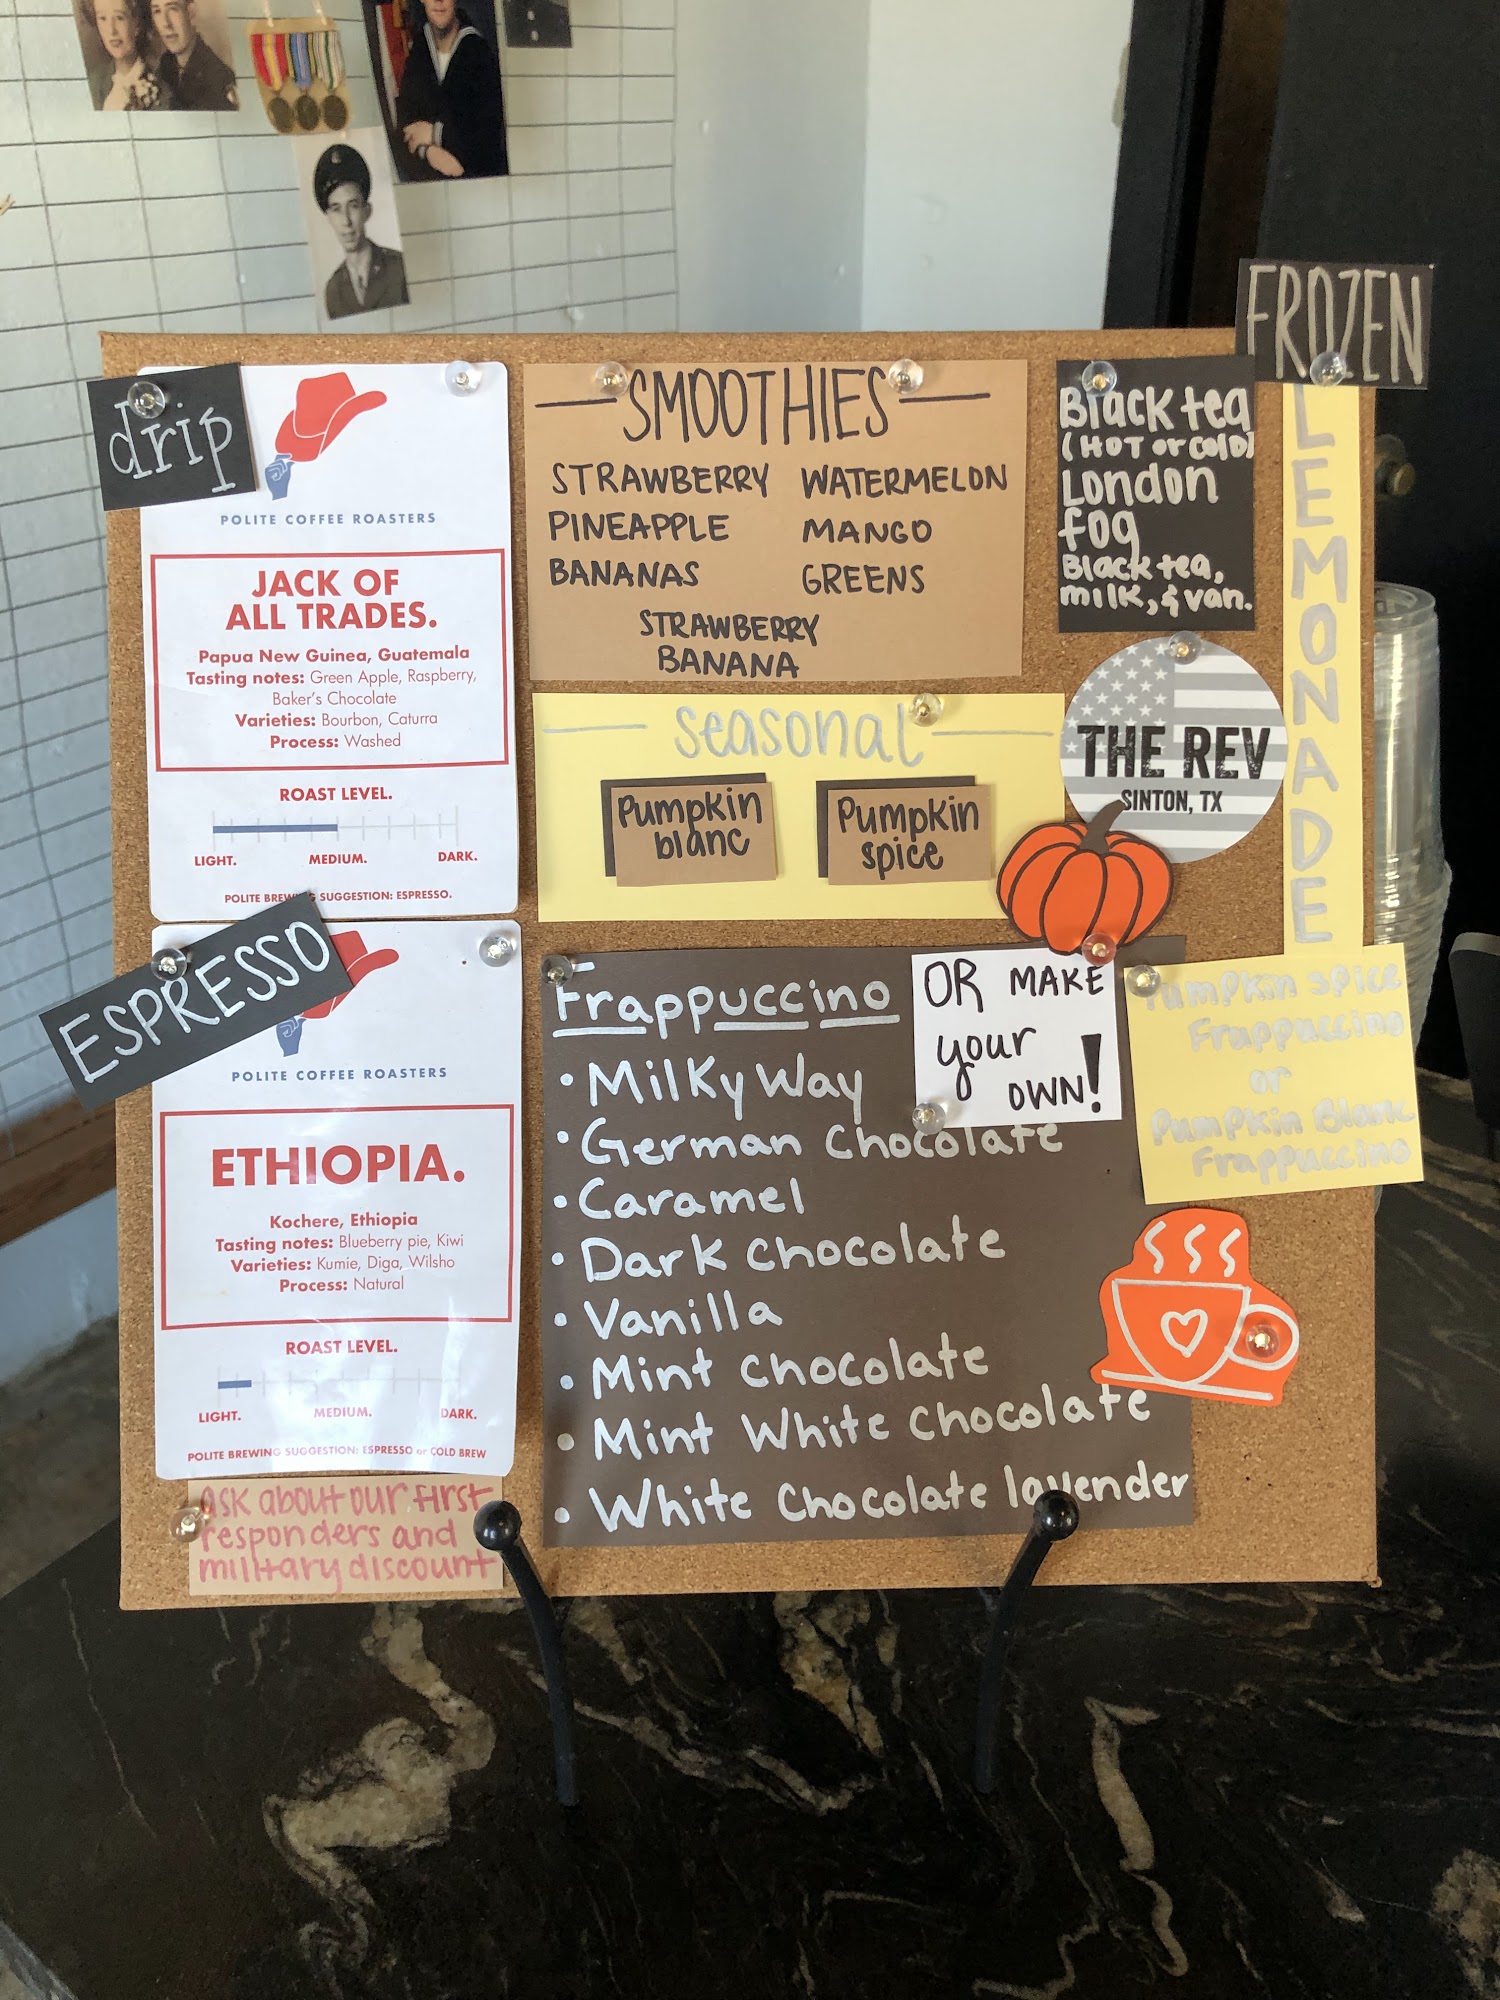 drip
POLITE COFFEE ROASTERS
JACK OF
ALL TRADES.
Papua New Guinea, Guatemala
Tasting notes: Green Apple, Raspberry,
Baker's Chocolate
Varieties: Bourbon, Caturra
Process: Washed
ROAST LEVEL.
LIGHT. MEDIUM. DARK.
POLITE BREWING SUGGESTION: ESPRESSO.
ESPRESSO
POLITE COFFEE ROASTERS
ETHIOPIA.
Kochere, Ethiopia
Tasting notes: Blueberry pie, Kiwi
Varieties: Kumie, Diga, Wilsho
Process: Natural
ROAST LEVEL.
LIGHT. MEDIUM. DARK.
POLITE BREWING SUGGESTION: ESPRESSO or COLD BREW
ask about our first
responders and
military discount
SMOOTHIES
STRAWBERRY WATERMELON
PINEAPPLE MANGO
BANANAS GREENS
STRAWBERRY
BANANA
Seasonal
Pumpkin
blanc
Pumpkin
spice
Frappuccino
• Milky Way
• German Chocolate
• Caramel
• Dark Chocolate
• Vanilla
• Mint Chocolate
• Mint White Chocolate
• White Chocolate lavender
OR MAKE
your
OWN!
Black tea
(HOT or COLD)
London
fog
Black tea,
milk, & van.
THE REV
SINTON, TX
FROZEN
LEMONADE
Pumpkin Spice
Frappuccino
or
Pumpkin Blanc
Frappuccino